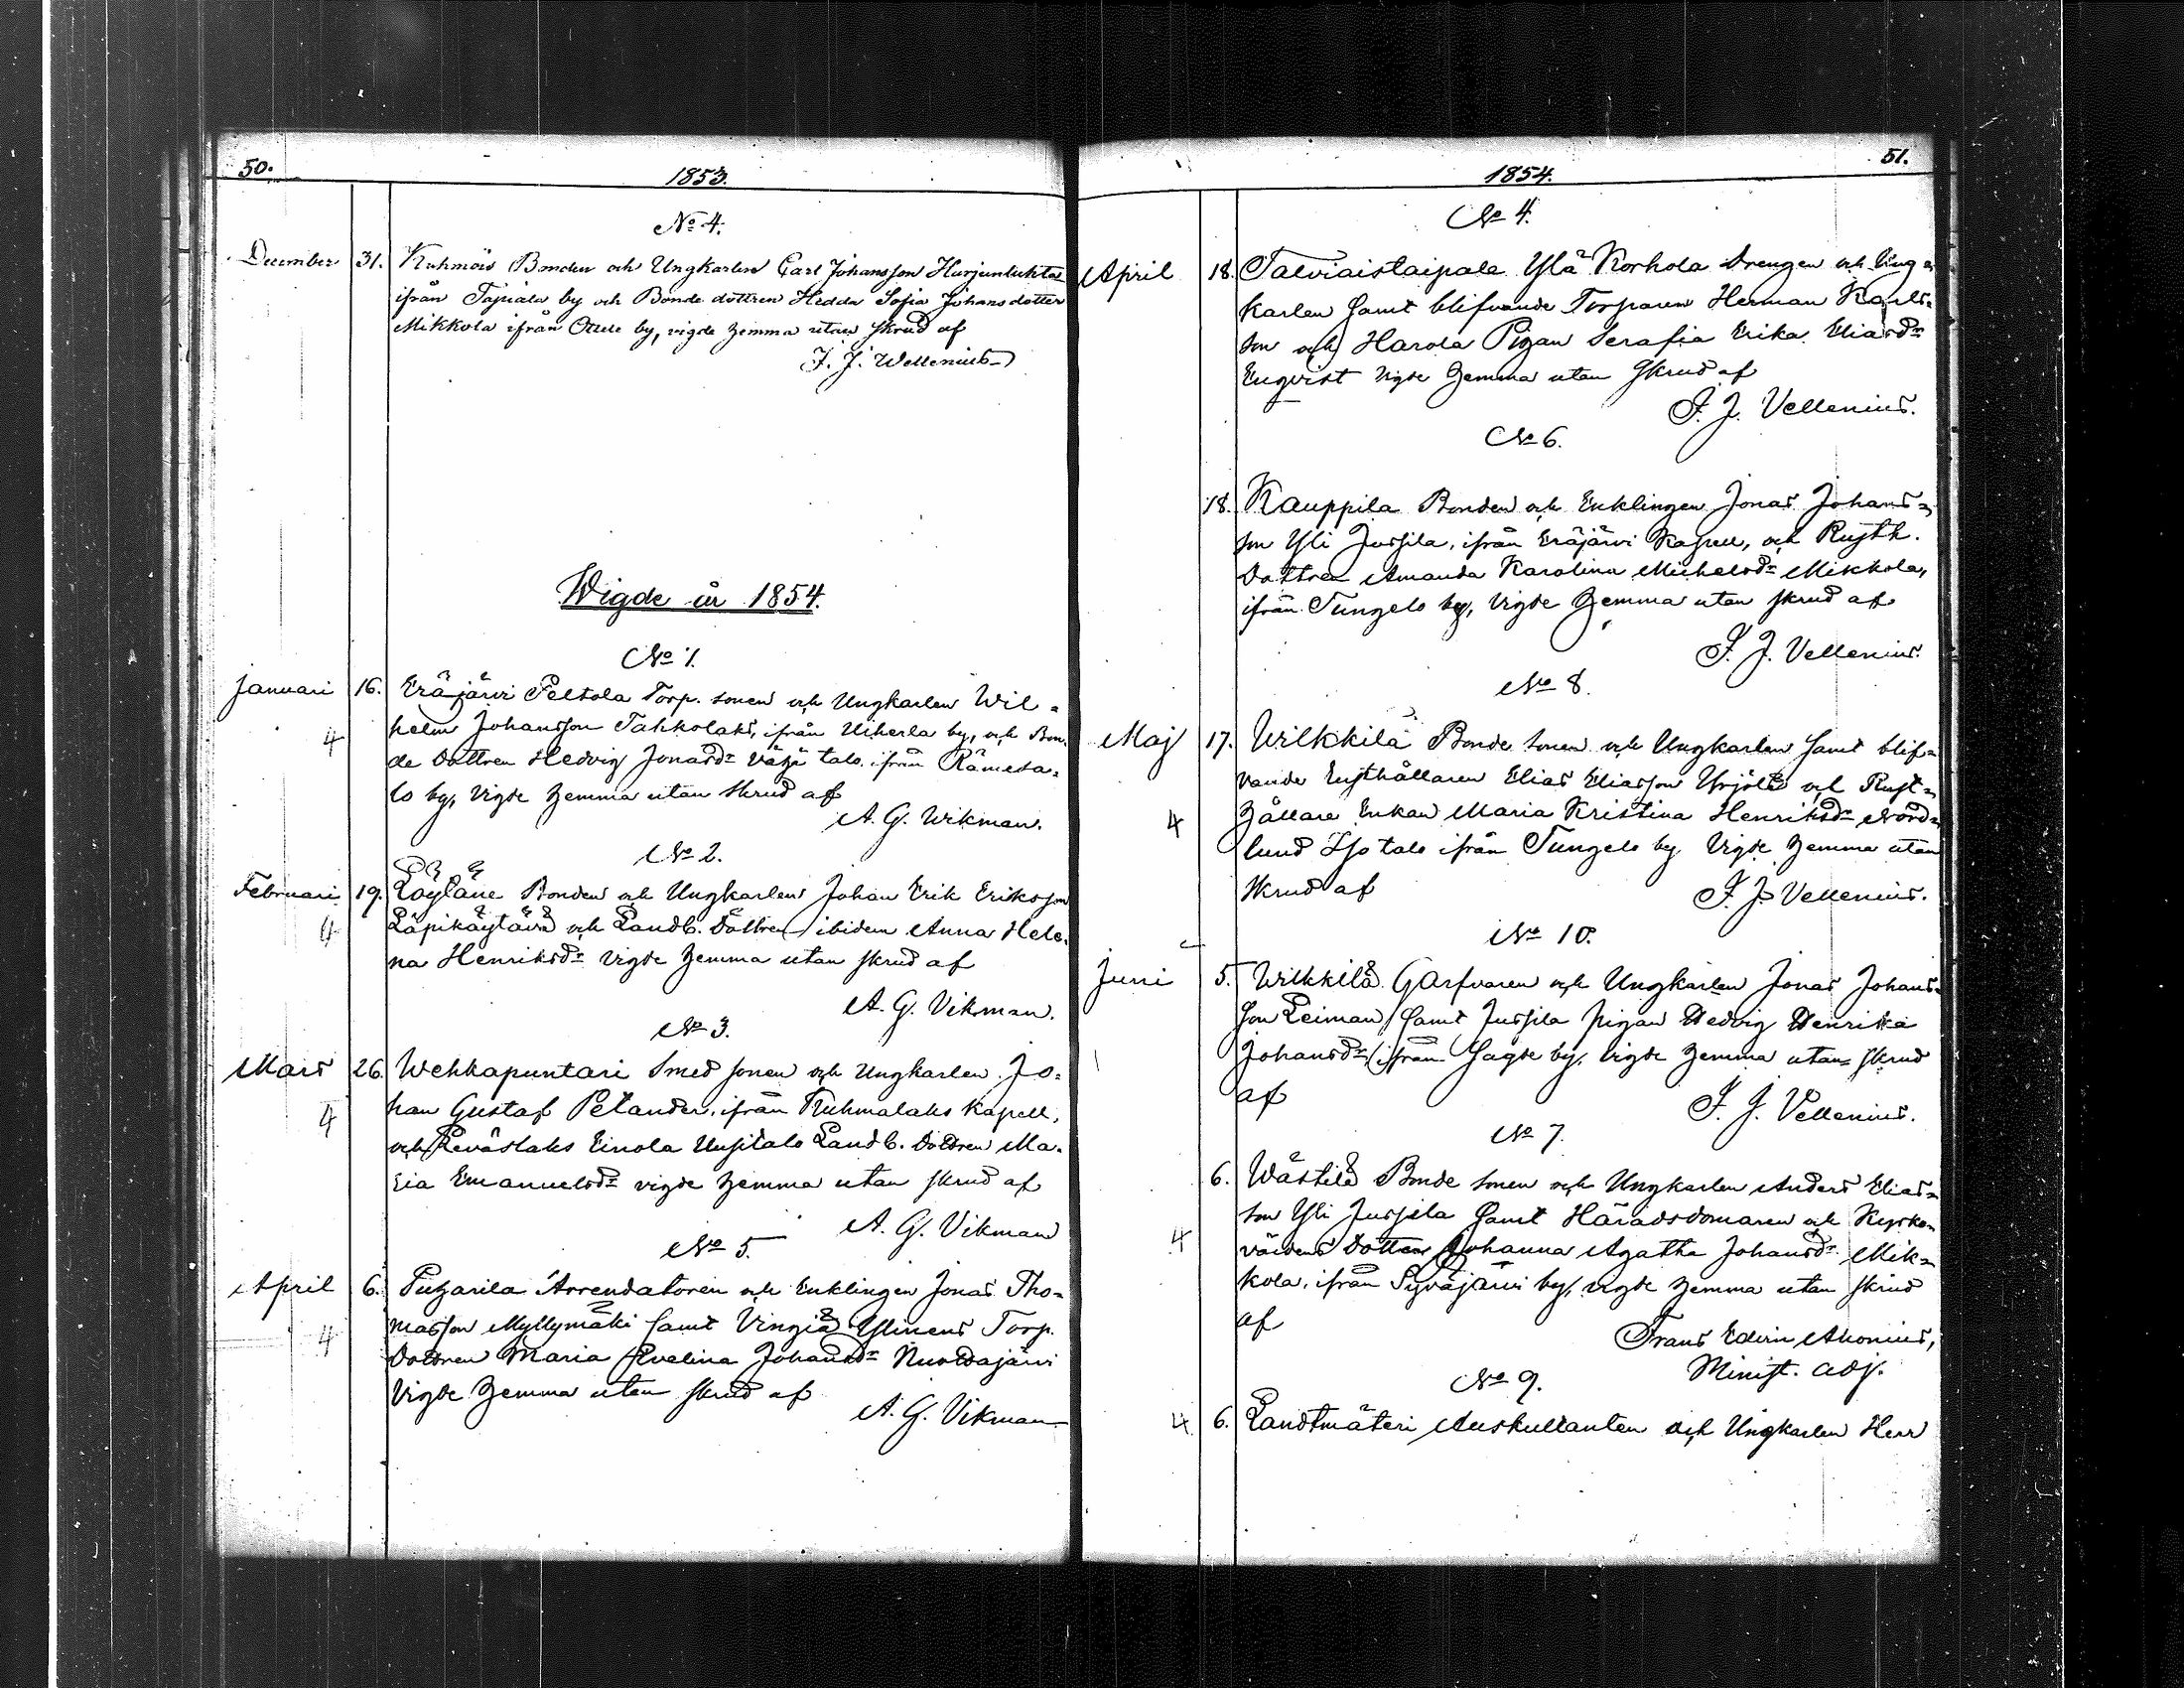 50.
1853.
No 4.
December 31. Kuhmois Bonden och Ungkarlen Carl Johansson Harjunluhta
ifrån Tapiala by och Bonde dottren Hedda Sofia Johansdotter
Mikkola ifrån by, vigde hemma utan skrud af
F. J. Wellenius
Wigde år 1854.
No 1.
Januari 16. Eräjärvi Peltola Torp. sonen och Ungkarlen Wil-
4 helm Johansson Tahkolaks, ifrån Uiherla by, och Bon-
de Dottren Hedvig Jonasdr Vähä talo ifrån Rämesa-
lo by, Vigde hemma utan skrud af
A. G. Wikman.
No 2.
Februari 19. Löytäne Bonden och Ungkarlen Johan Erik Eriksson
4 Läpikäytävä och Landb. Dottren ibidem Anna Hele-
na Henriksdr Vigde hemma utan skrud af
A. G. Vikman.
No 3.
Mars 26. Wehkapuntari Smed sonen och Ungkarlen Jo-
4 han Gustaf Petander, ifrån Kuhmalaks Kapell,
och Leväslaks Einola Uusitalo Landb. Dottren Ma-
ria Emanuelsdr vigde hemma utan skrud af
A. G. Vikman
No 5.
April 6. Puharila Arrendatoren och Enklingen Jonas Tho-
4 masson Myllymäki samt Vingiä Ylinens Torp.
Dottren Maria Evelina Johansdr Nuoldajärvi
Vigde hemma utan skrud af
A. G. Vikman
51.
1854.
No 4.
April 18. Talviaistaipale Ylä Korhola Drengen och Ung-
karlen samt blifvande Torparen Herman Karls-
son och Harola Pigan Serafia Erika Eliasdr
Enqvist Vigde hemma utan skrud af
F. J. Vellenius.
No 6.
18. Kauppila Bonden och Enklingen Jonas Johans-
son Yli Jussila, ifrån Eräjärvi Kapell, och Rusth.
Dottren Amanda Karolina Michelsdr Mikkola,
ifrån Tungelo by, Vigde hemma utan skrud af
F. J. Vellenius.
No 8.
Maj 17. Wilkkilä Bonde sonen och Ungkarlen samt blif-
vande Rusthållaren Elias Eliasson Yrjölä och Rust-
4 hållare Enkan Maria Kristina Henriksdr Nord-
lund Iso talo ifrån Tungelo by Vigde hemma utan
skrud af
F. J. Vellenius.
No 10.
Juni 5. Wilkkilä Garfvaren och Ungkarlen Jonas Johans-
son Leiman samt Jussila pigan Hedvig Henrika
Johansdr ifrån Sagde by, Vigde hemma utan skrud
af
F. J. Vellenius.
No 7.
6. Wästilä Bonde sonen och Ungkarlen Anders Elias-
4 son Yli Jussila samt Häradsdomaren och Kyrko-
värdens Dottren Johanna Agatha Johansdr Mik-
kola, ifrån Syväjärvi by, vigde hemma utan skrud
af
Frans Edvin Ahonius,
Minist. adj.
No 9.
4 6. Landtmäteri Auskultanten och Ungkarlen Herr